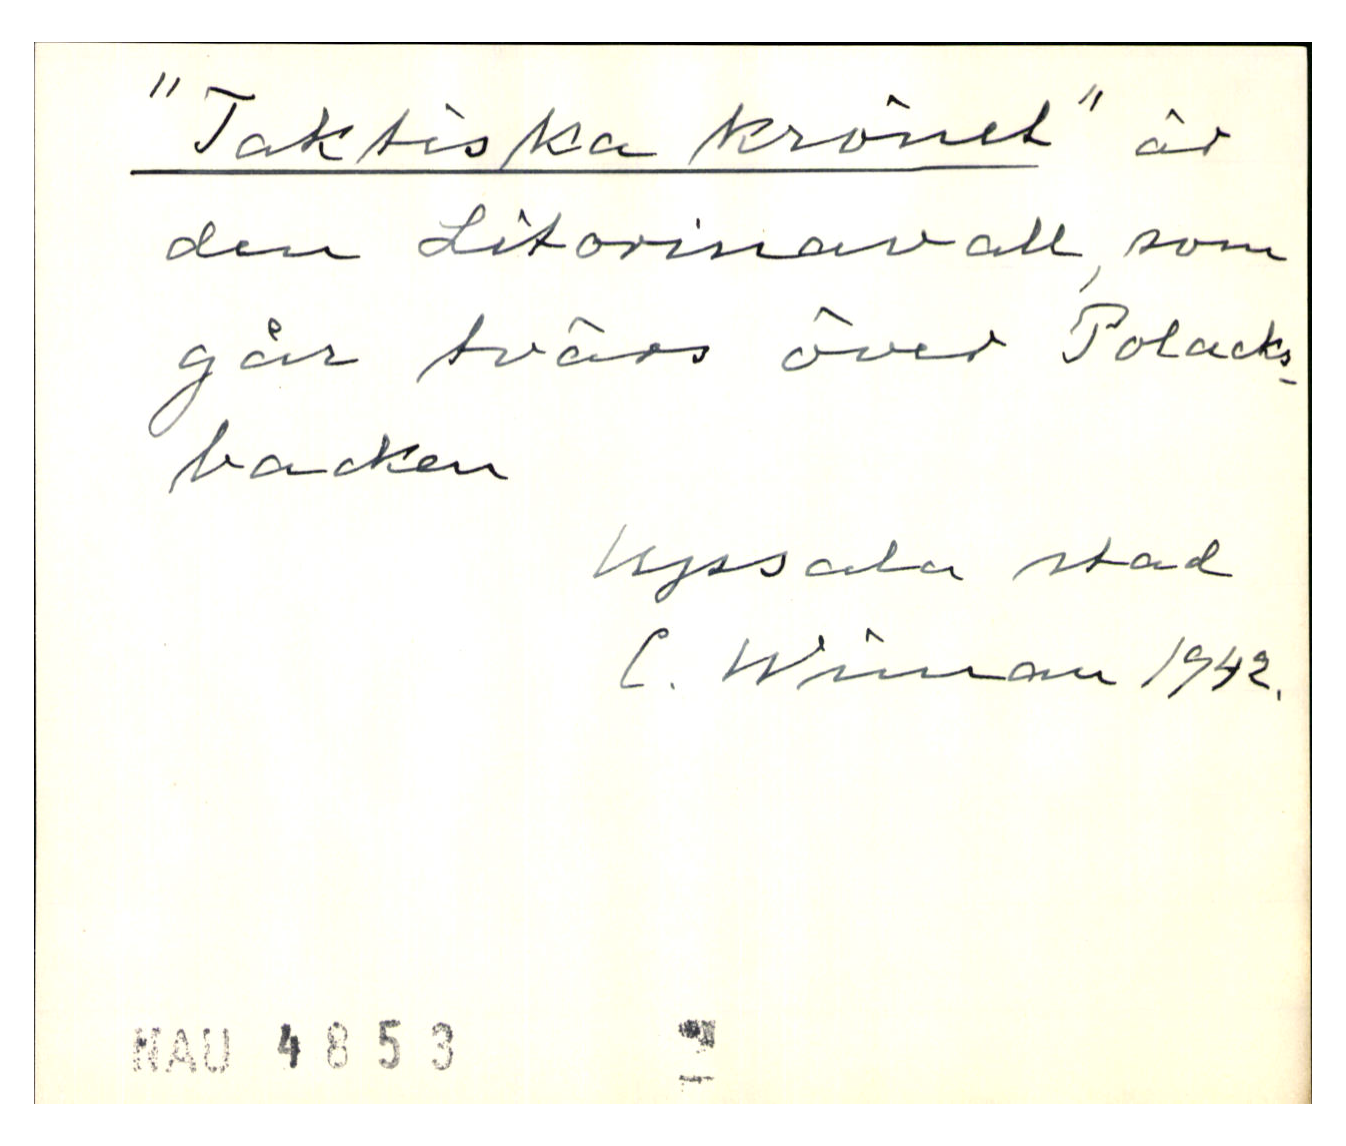 "Taktiska krönet" är
den Litorinavall, som
går tvärs över Polacks-
backen
Uppsala stad
C. Wiman 1942.
NAU 4853